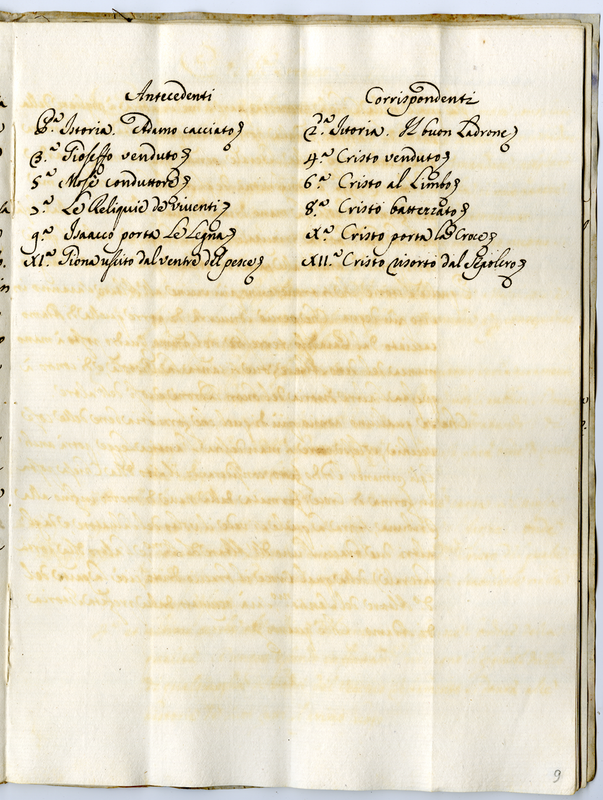 Antecedenti Corrispondenti
P.ª Istoria. Adamo cacciato 2.ª Istoria. Il buon Ladrone
3.ª Gioseffo venduto 4.ª Cristo venduto
5.ª Mosè conduttore 6.ª Cristo al Limbo
7.ª Le Reliquie de Viventi 8.ª Cristo battezzato
9.ª Isaacco porta Le Legna X.ª Cristo porta la Croce
XI.ª Giona uscito dal ventre del pesce XII.ª Cristo risorto dal Sepolcro
9